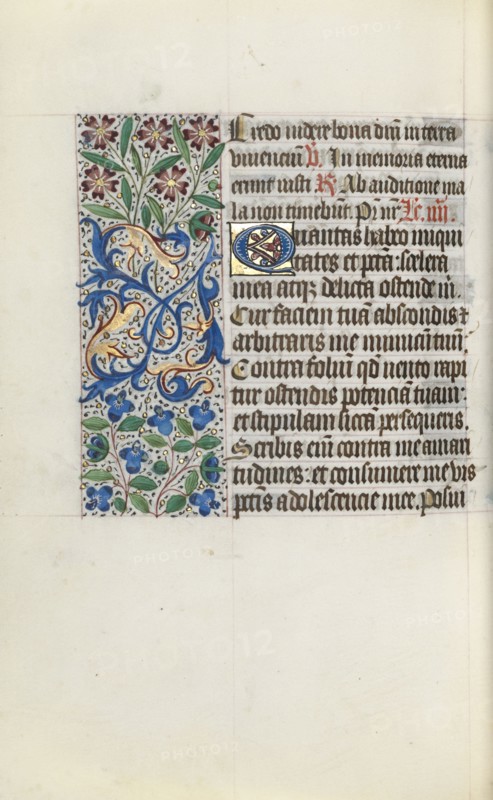 Credo videre bona dñi in terra
viuenciũ V̸. In memoria eterna
erunt iusti R̸. Ab auditione ma
la non timebũt. Pr̃ nr̃. Lc̃. iiii.
Quantas habeo iniqui
tates et pctã: scelera
mea atq3 delicta ostende m̃.
Cur faciem tuã abscondis ⁊
arbitraris me inimicũ tuũ.
Contra foliũ qd̃ vento rapi
tur ostendis potenciã tuam:
et stipulam siccã persequeris.
Scribis em̃ contra me amari
tudines: et consumere me vis
pctĩs adolescencie mee. Posui
PHOTO12
PHOTO12
PHOTO12
PHOTO12